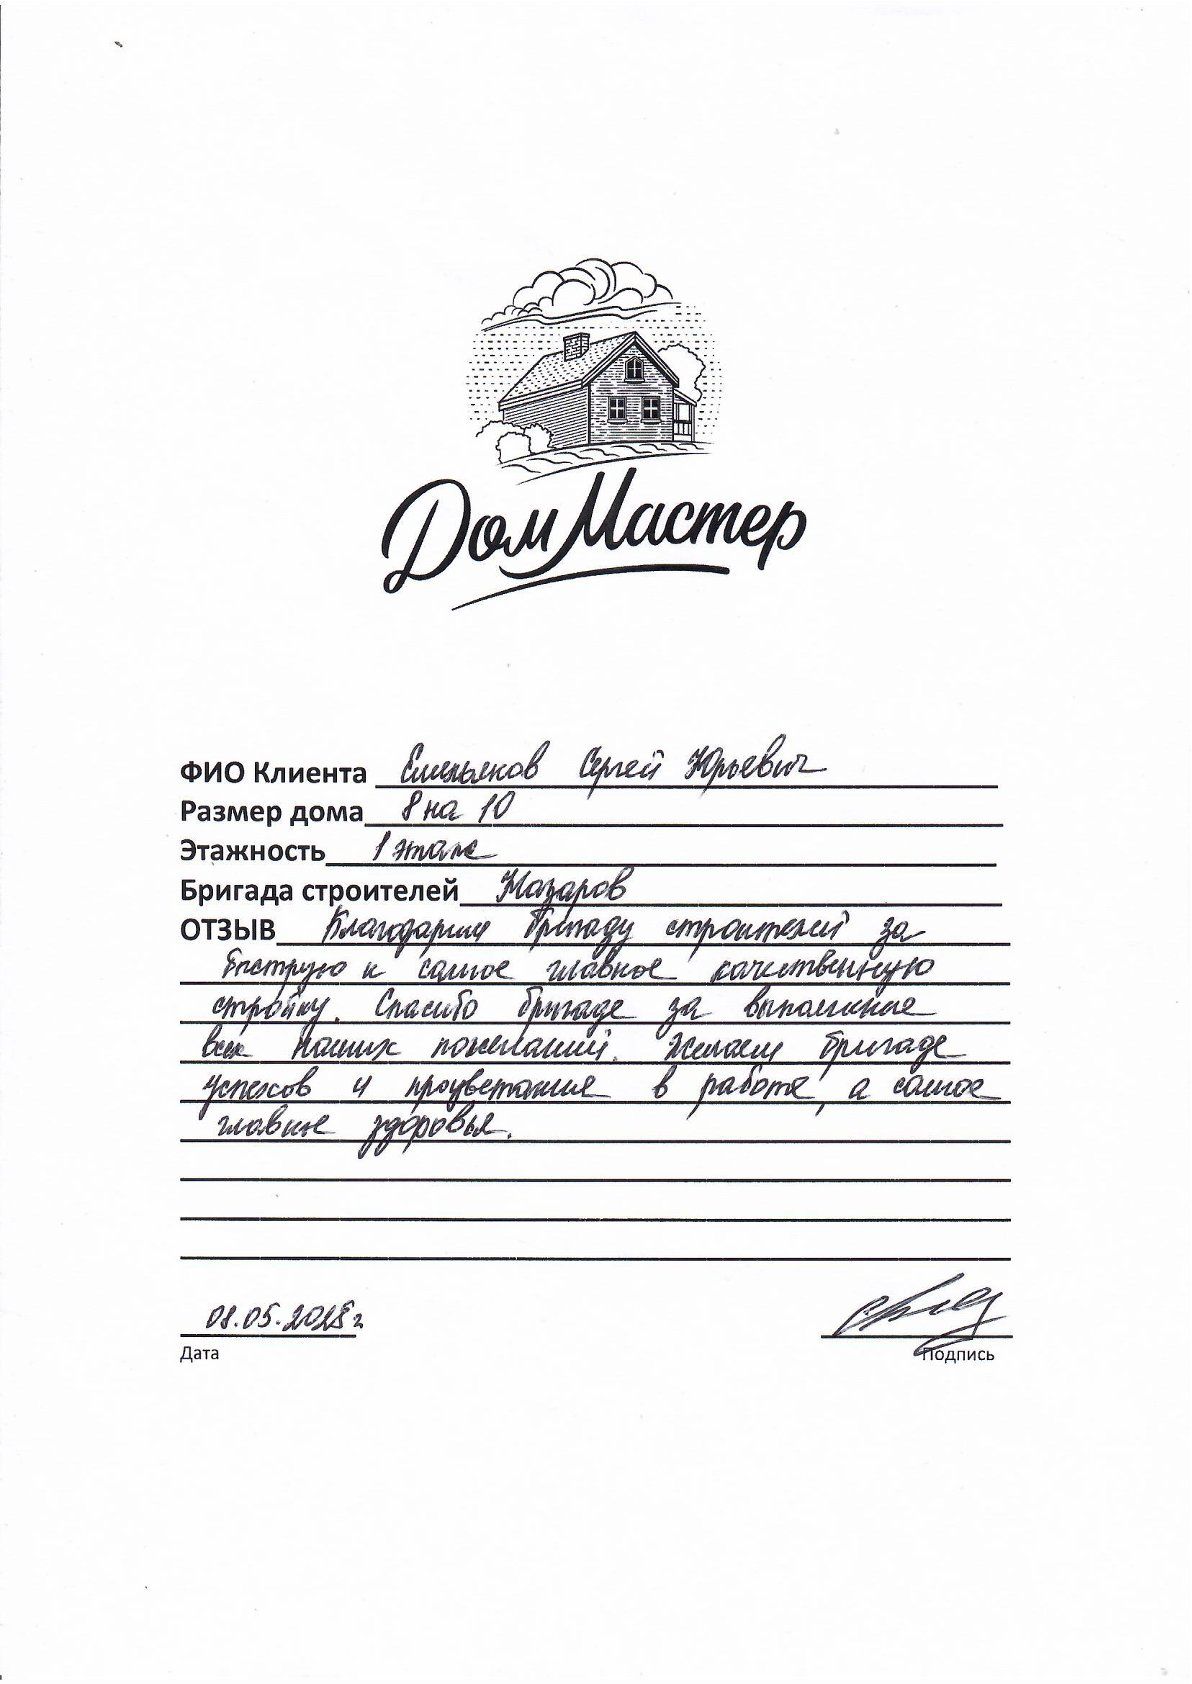 Дом Мастер
ФИО Клиента Емельяков Сергей Юрьевич
Размер дома 8 на 10
Этажность 1 этаж
Бригада строителей Назаров
ОТЗЫВ Благодарим бригаду строителей за
быструю и самое главное качественную
стройку. Спасибо бригаде за выполнение
всех наших пожеланий. Желаем бригаде
успехов и процветания в работе, а самое
главное здоровья.
Дата
Подпись